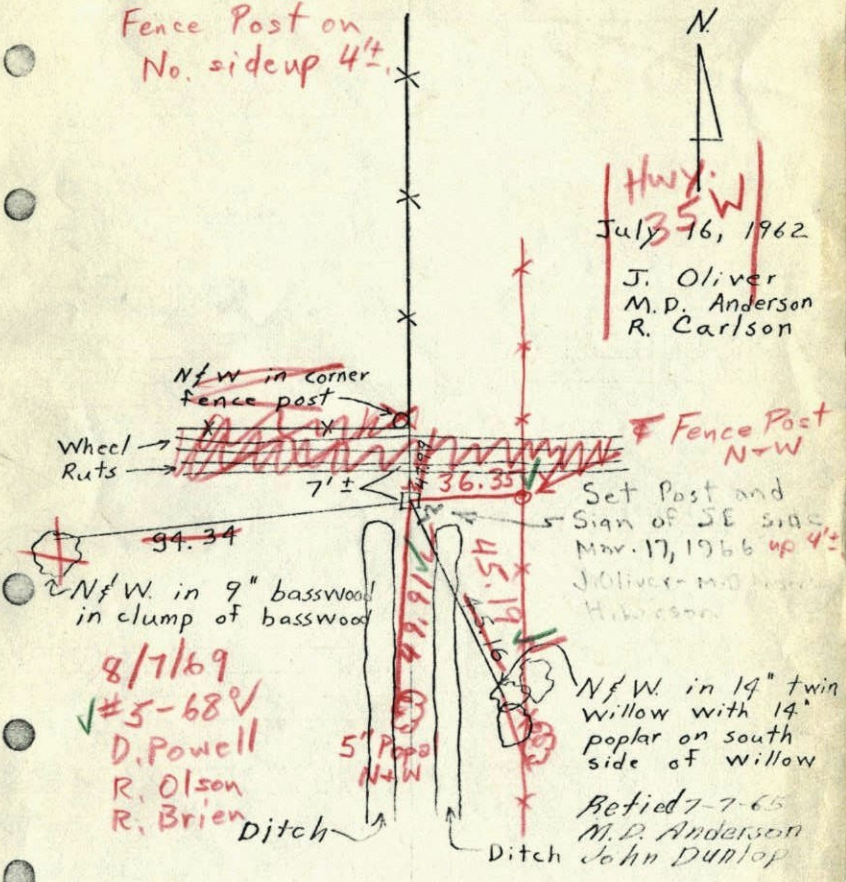 Fence Post on
No. side up 4'±
N.
Hwy.
35 W
July 16, 1962
J. Oliver
M.D. Anderson
R. Carlson
N & W in corner
fence post
Wheel
Ruts
7'±
36.35
Fence Post
N+W
Set Post and
Sign of SE side
Mar. 17, 1966 up 4'±
J. Oliver - M.D.
94.34
45.19
45.16
N & W. in 9" basswood
in clump of basswood
8/7/69
#5-68°
D. Powell
R. Olson
R. Brien
5" Popal
N+W
N & W. in 14" twin
willow with 14"
poplar on south
side of willow
Retied 7-7-65
M.D. Anderson
John Dunlop
Ditch
Ditch